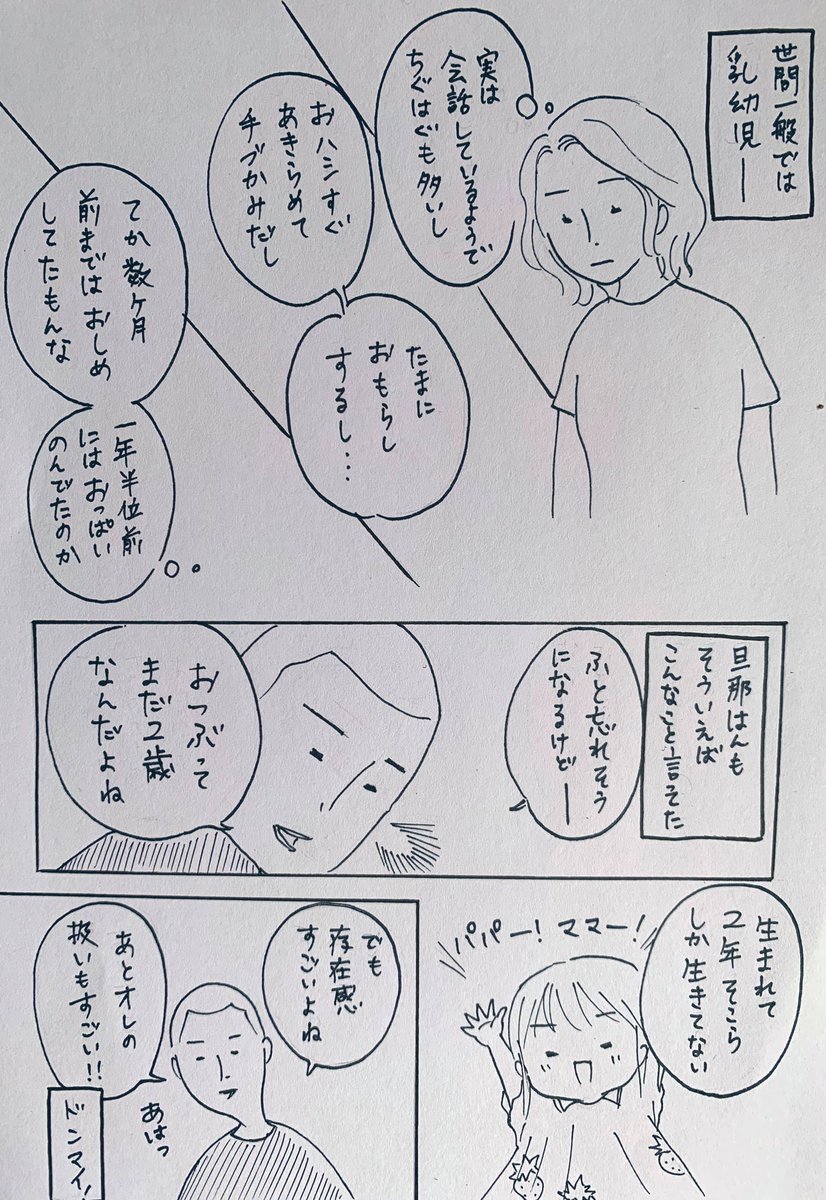 世間一般では
乳幼児ー
実は
会話しているようで
ちぐはぐも多いし
おハシすぐ
あきらめて
手づかみだし
たまに
おもらし
するし・・・
てか数ヶ月
前まではおしめ
してたもんな
一年半位前
にはおっぱい
のんでたのか
旦那はんも
そういえば
こんなこと言そた
ふと忘れそう
になるけどー
おつぶって
まだ2歳
なんだよね
生まれて
2年そこら
しか生きてない
パパー!ママー!
でも
存在感
すごいよね
あとオレの
扱いもすごい!!
あはっ
ドンマイ!